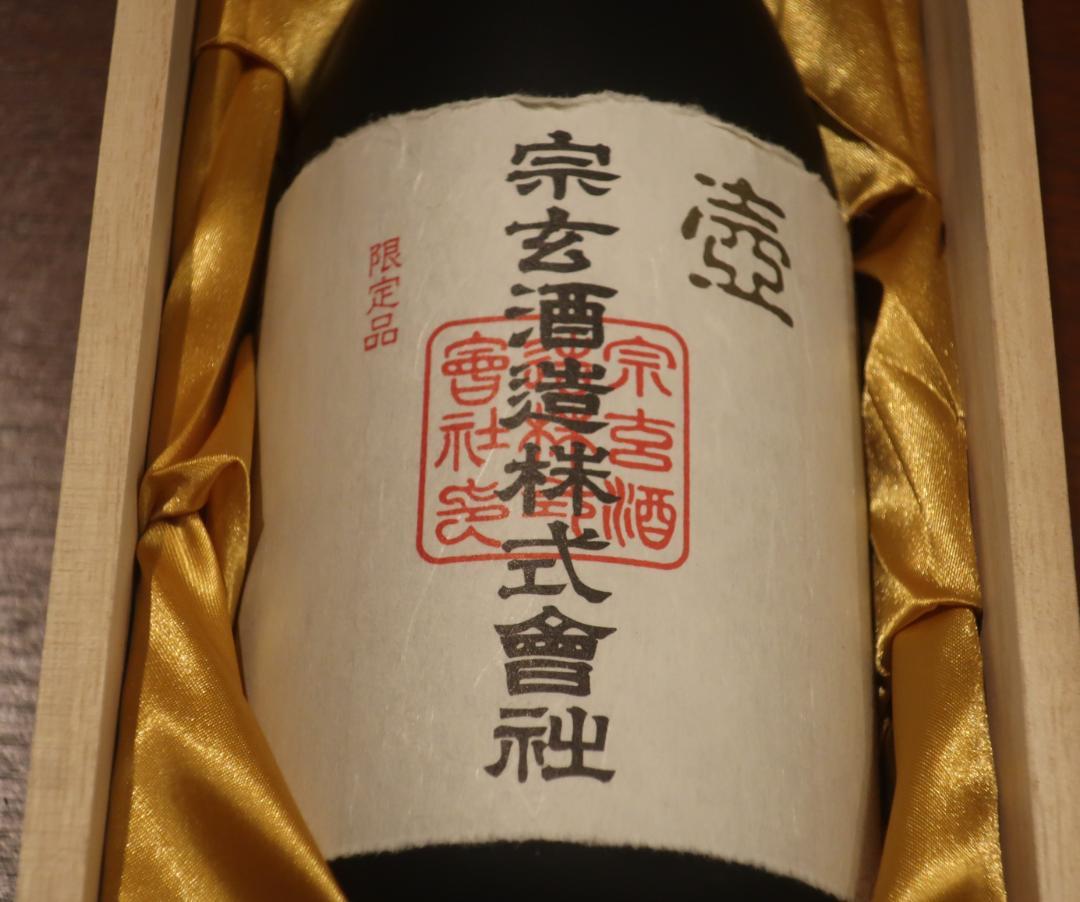 壺
宗玄酒造株式會社
限定品
宗玄酒
造株式
會社印